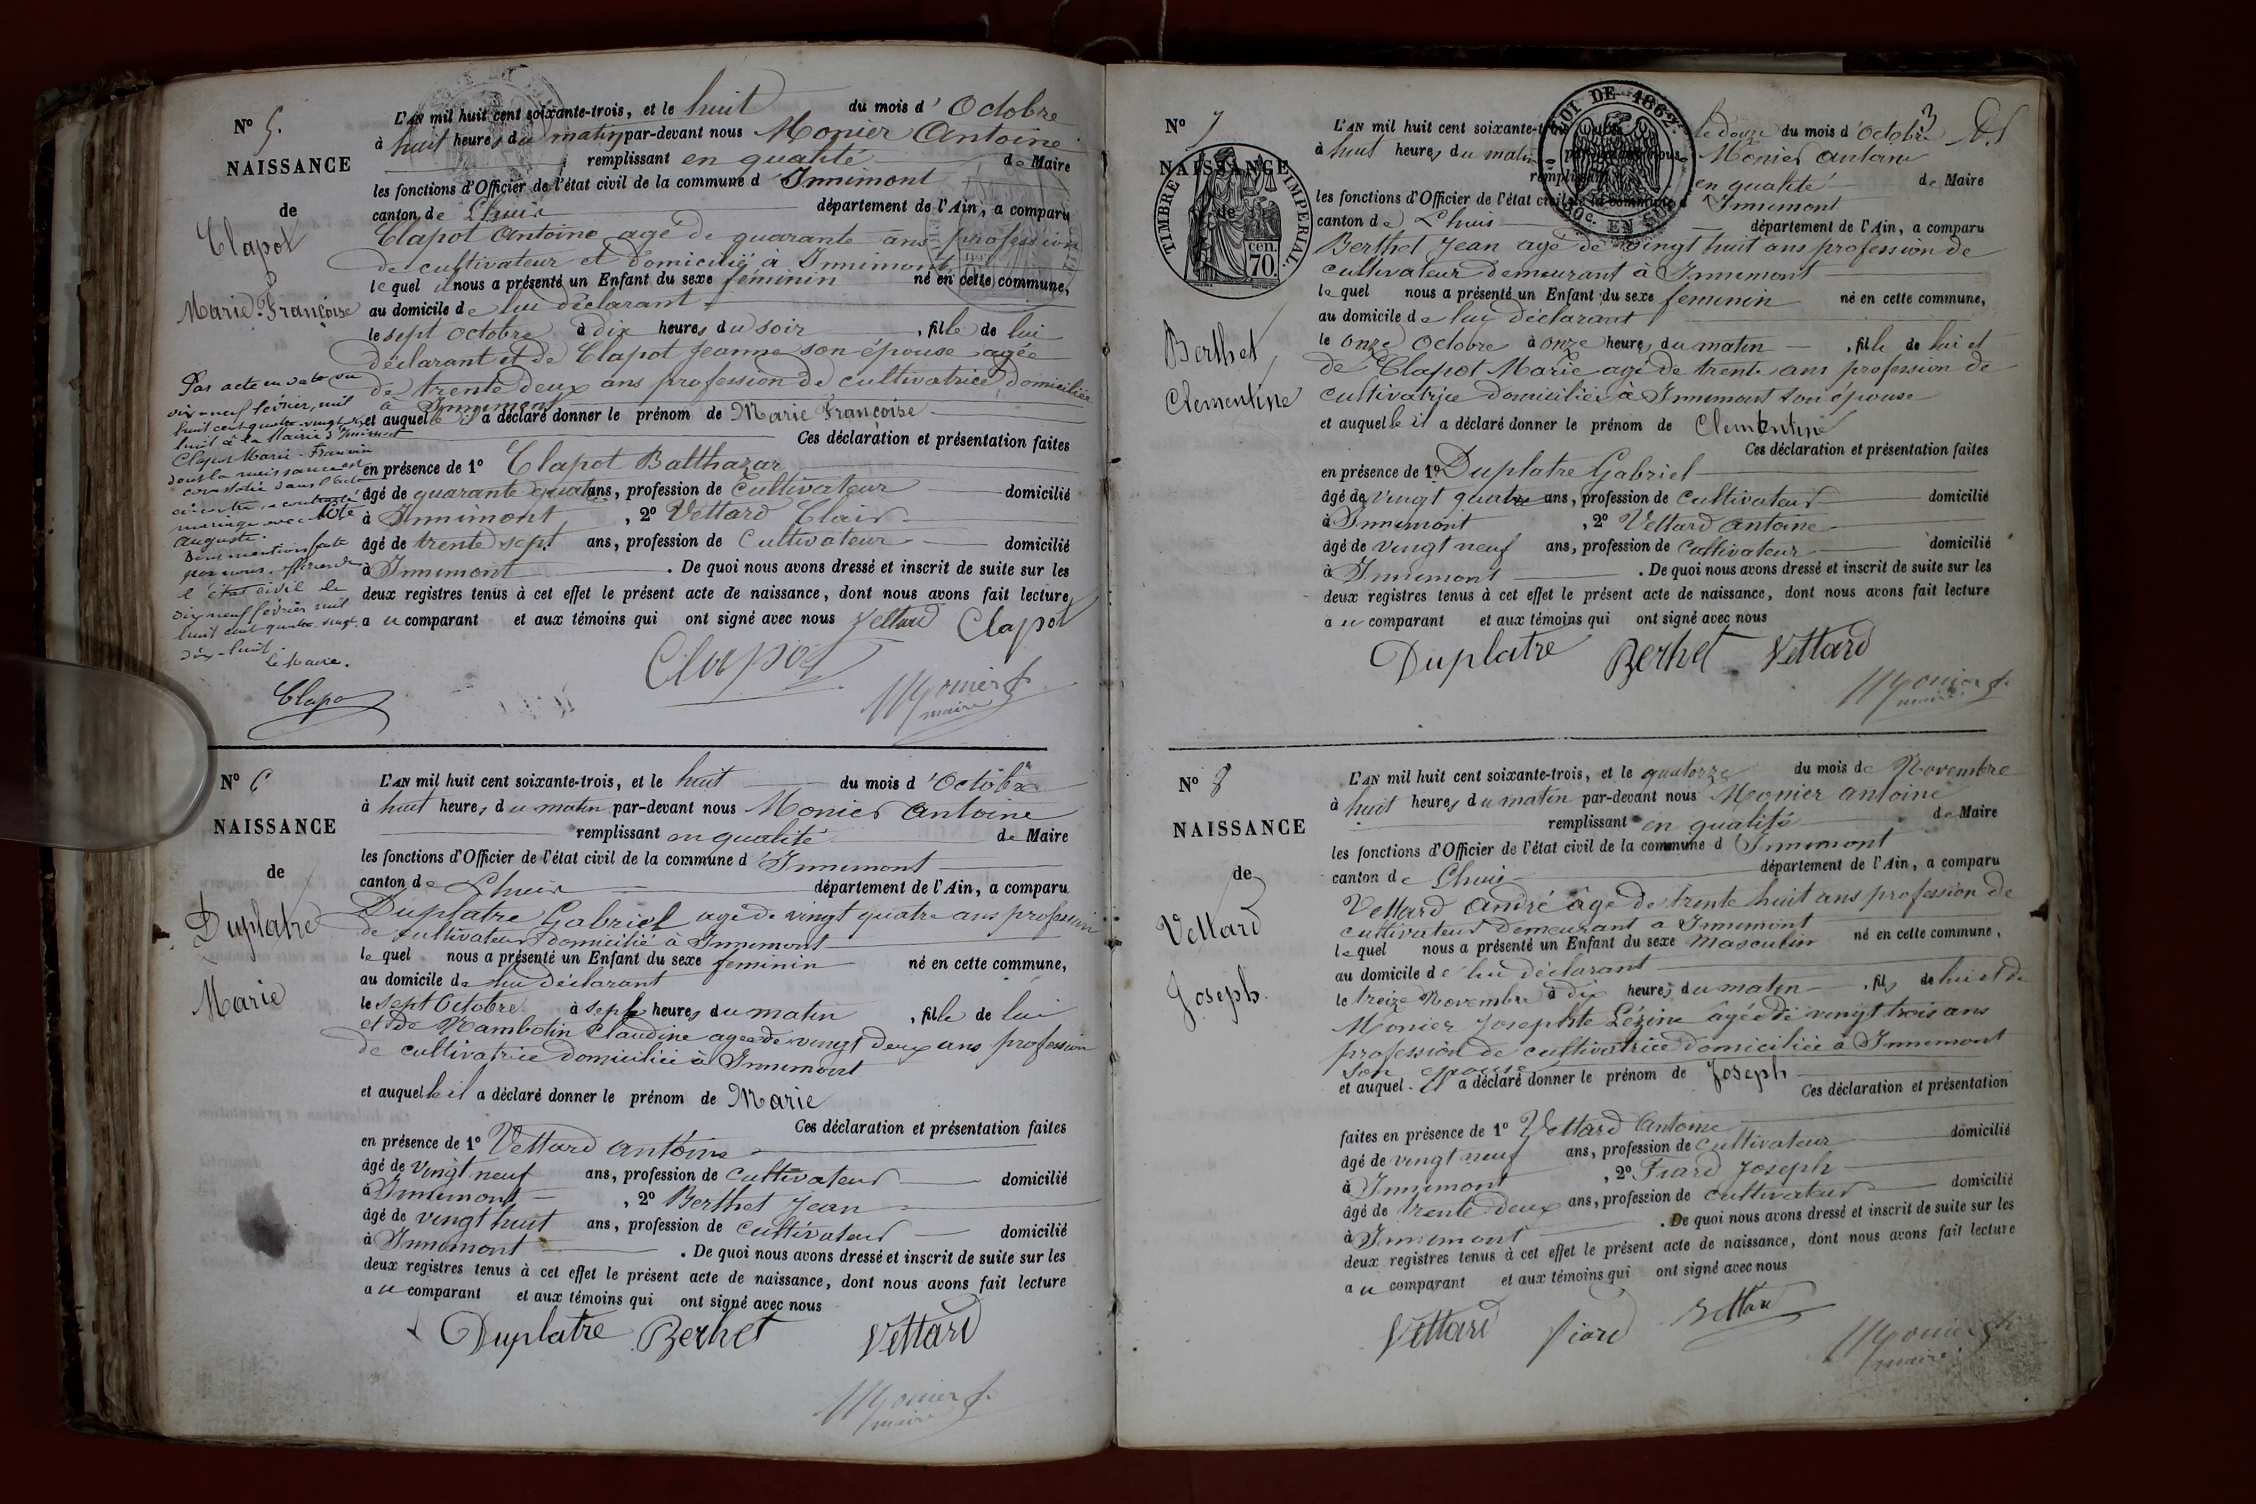 N° 5.
NAISSANCE
de
Clapot
Marie-Françoise
L'AN mil huit cent soixante-trois, et le huit du mois d'Octobre
à huit heures du matin par-devant nous Monier Antoine
remplissant en qualité de Maire
les fonctions d'Officier de l'état civil de la commune d'Innimont
canton de Lhuis département de l'Ain, a comparu
Clapot Antoine agé de quarante ans profession
de cultivateur et domicilié a Innimont
lequel nous a présenté un Enfant du sexe féminin né en cette commune,
au domicile de lui déclarant
le sept octobre à dix heures du soir, fille de lui
déclarant et de Clapot Jeanne son épouse agée
de trente deux ans profession de cultivatrice domiciliée
à Innimont
et auquel il a déclaré donner le prénom de Marie Françoise
Ces déclaration et présentation faites
en présence de 1° Clapot Balthazar
âgé de quarante quatre ans, profession de Cultivateur domicilié
à Innimont, 2° Vettard Clair
âgé de trente sept ans, profession de Cultivateur domicilié
à Innimont. De quoi nous avons dressé et inscrit de suite sur les
deux registres tenus à cet effet le présent acte de naissance, dont nous avons fait lecture
au comparant et aux témoins qui ont signé avec nous Vettard Clapot
Clapot
Monier A.
maire
Par acte en date du
dix-neuf février, mil
huit cent quatre-vingt dix
huit à la Mairie d'Innimont
Clapot Marie-Françoise
dont la naissance est
constatée dans l'acte
ci-contre, a contracté
mariage avec
Auguste.
Dont mention faite
par nous, officier de
l'état civil le
dix neuf février mil
huit cent quatre-vingt
dix-huit.
Le Maire.
Clapo
N° 6
NAISSANCE
de
Duplatre
Marie
L'AN mil huit cent soixante-trois, et le huit du mois d'Octobre
à huit heures du matin par-devant nous Monier Antoine
remplissant en qualité de Maire
les fonctions d'Officier de l'état civil de la commune d'Innimont
canton de Lhuis département de l'Ain, a comparu
Duplatre Gabriel agé de vingt quatre ans profession
de cultivateur domicilié à Innimont
lequel nous a présenté un Enfant du sexe feminin né en cette commune,
au domicile de lui déclarant
le sept Octobre à sept heures du matin, fille de lui
et de Mambotin Claudine agée de vingt deux ans profession
de cultivatrice domiciliée à Innimont
et auquelle il a déclaré donner le prénom de Marie
Ces déclaration et présentation faites
en présence de 1° Vettard Antoine
âgé de vingt neuf ans, profession de cultivateur domicilié
à Innimont, 2° Berthet Jean
âgé de vingt huit ans, profession de cultivateur domicilié
à Innimont. De quoi nous avons dressé et inscrit de suite sur les
deux registres tenus à cet effet le présent acte de naissance, dont nous avons fait lecture
au comparant et aux témoins qui ont signé avec nous
Duplatre Berhet Vettard
Monier A.
maire
3
N° 7
NAISSANCE
de
TIMBRE IMPERIAL.
cen.
70.
LOI DE 1862.
EN SUS
Berthet
Clementine
L'AN mil huit cent soixante-trois le douze du mois d'Octobre
à huit heures du matin par-devant nous Monier Antoine
remplissant en qualité de Maire
les fonctions d'Officier de l'état civil de la commune d'Innimont
canton de Lhuis département de l'Ain, a comparu
Berthet Jean agé de vingt huit ans profession de
cultivateur demeurant à Innimont
lequel nous a présenté un Enfant du sexe feminin né en cette commune,
au domicile de lui déclarant
le onze Octobre à onze heures du matin, fille de lui et
de Clapot Marie agé de trente ans profession de
cultivatrice domiciliée à Innimont son épouse
et auquelle il a déclaré donner le prénom de Clementine
Ces déclaration et présentation faites
en présence de 1° Duplatre Gabriel
âgé de vingt quatre ans, profession de cultivateur domicilié
à Innimont, 2° Vettard Antoine
âgé de vingt neuf ans, profession de Cultivateur domicilié
à Innimont. De quoi nous avons dressé et inscrit de suite sur les
deux registres tenus à cet effet le présent acte de naissance, dont nous avons fait lecture
au comparant et aux témoins qui ont signé avec nous
Duplatre Berhet Vettard
Monier A.
maire
N° 8
NAISSANCE
de
Vettard
Joseph.
L'AN mil huit cent soixante-trois, et le quatorze du mois de Novembre
à huit heures du matin par-devant nous Monier antoine
remplissant en qualité de Maire
les fonctions d'Officier de l'état civil de la commune d'Innimont
canton de Lhuis département de l'Ain, a comparu
Vettard André âgé de trente huit ans profession de
cultivateur demeurant a Innimont
lequel nous a présenté un Enfant du sexe masculin né en cette commune,
au domicile de lui déclarant
le treize Novembre à dix heures du matin, fils de lui et de
Monier Josephte Lézine agée de vingt trois ans
profession de cultivatrice domiciliée à Innimont
son epouse
et auquel il a déclaré donner le prénom de Joseph
Ces déclaration et présentation
faites en présence de 1° Vettard Antoine
âgé de vingt neuf ans, profession de cultivateur domicilié
à Innimont, 2° Fiard Joseph
âgé de trente deux ans, profession de cultivateur domicilié
à Innimont. De quoi nous avons dressé et inscrit de suite sur les
deux registres tenus à cet effet le présent acte de naissance, dont nous avons fait lecture
au comparant et aux témoins qui ont signé avec nous
Vettard fiard Vettard
Monier A.
maire